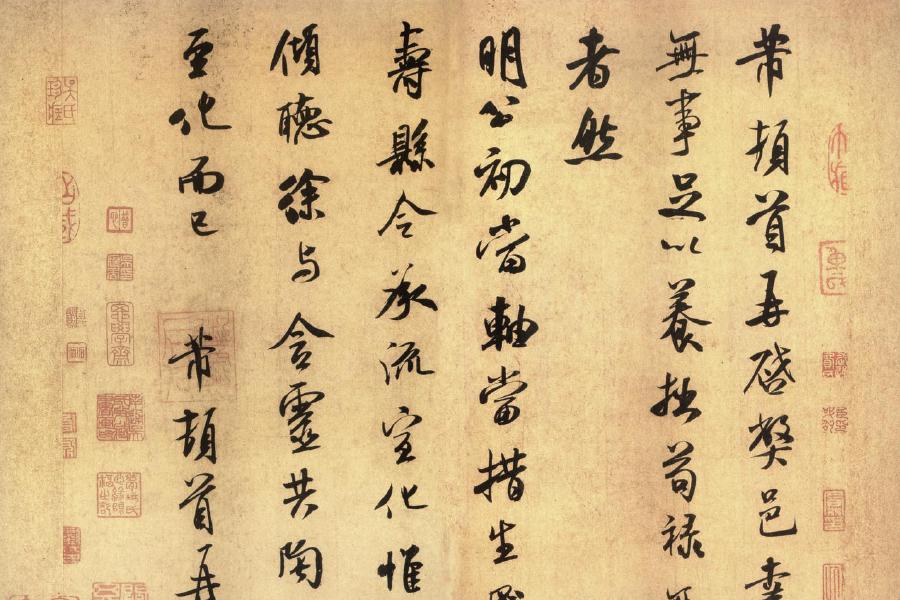 芾頓首再啓弊邑幸
無事足以養拙苟祿無
者然
明公初當軸當措生民
壽縣令承流宣化惟
傾聽徐与含靈共陶
至化而已 芾頓首再